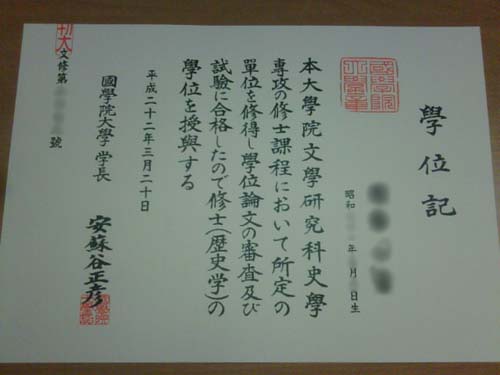 學位記
昭和 年 月 日生
本大學院文學研究科史學
専攻の修士課程において所定の
單位を修得し學位論文の審査及び
試験に合格したので修士(歴史学)の
學位を授與する
平成二十二年三月二十日
國學院大學 学長 安蘇谷正彦
文修第 號